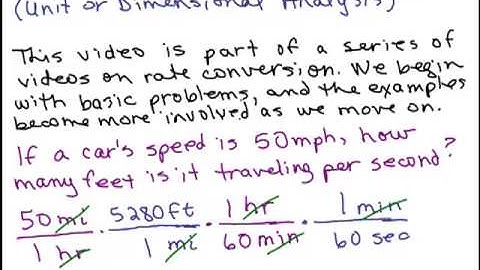 (Unit or Dimensional Analysis)
This video is part of a series of
videos on rate conversion. We begin
with basic problems, and the examples
become more involved as we move on.
If a car's speed is 50mph, how
many feet is it traveling per second?
50 mi · 5280 ft · 1 hr · 1 min
1 hr 1 mi 60 min 60 sec